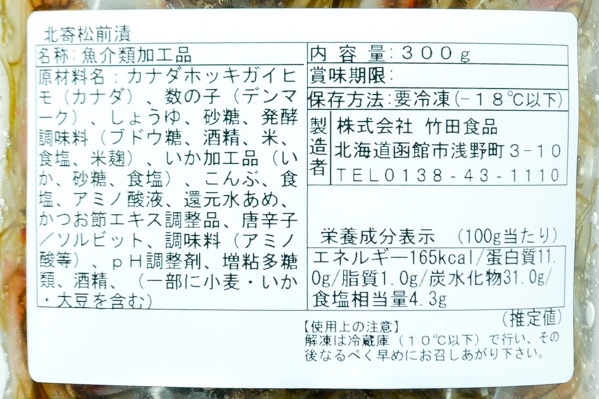 北寄松前漬
名称：魚介類加工品
原材料名：カナダホッキガイヒ
モ（カナダ）、数の子（デンマ
ーク）、しょうゆ、砂糖、発酵
調味料（ブドウ糖、酒精、米、
食塩、米麹）、いか加工品（い
か、砂糖、食塩）、こんぶ、食
塩、アミノ酸液、還元水あめ、
かつお節エキス調整品、唐辛子
／ソルビット、調味料（アミノ
酸等）、ｐＨ調整剤、増粘多糖
類、酒精、（一部に小麦・いか
・大豆を含む）
内容量：３００ｇ
賞味期限：
保存方法：要冷凍（−１８℃以下）
製造者
株式会社 竹田食品
北海道函館市浅野町３−１０
ＴＥＬ０１３８−４３−１１１０
栄養成分表示 （100g当たり）
エネルギー165kcal/蛋白質11.
0g/脂質1.0g/炭水化物31.0g/
食塩相当量4.3g
（推定値）
【使用上の注意】
解凍は冷蔵庫（１０℃以下）で行い、その
後なるべく早めにお召しあがり下さい。